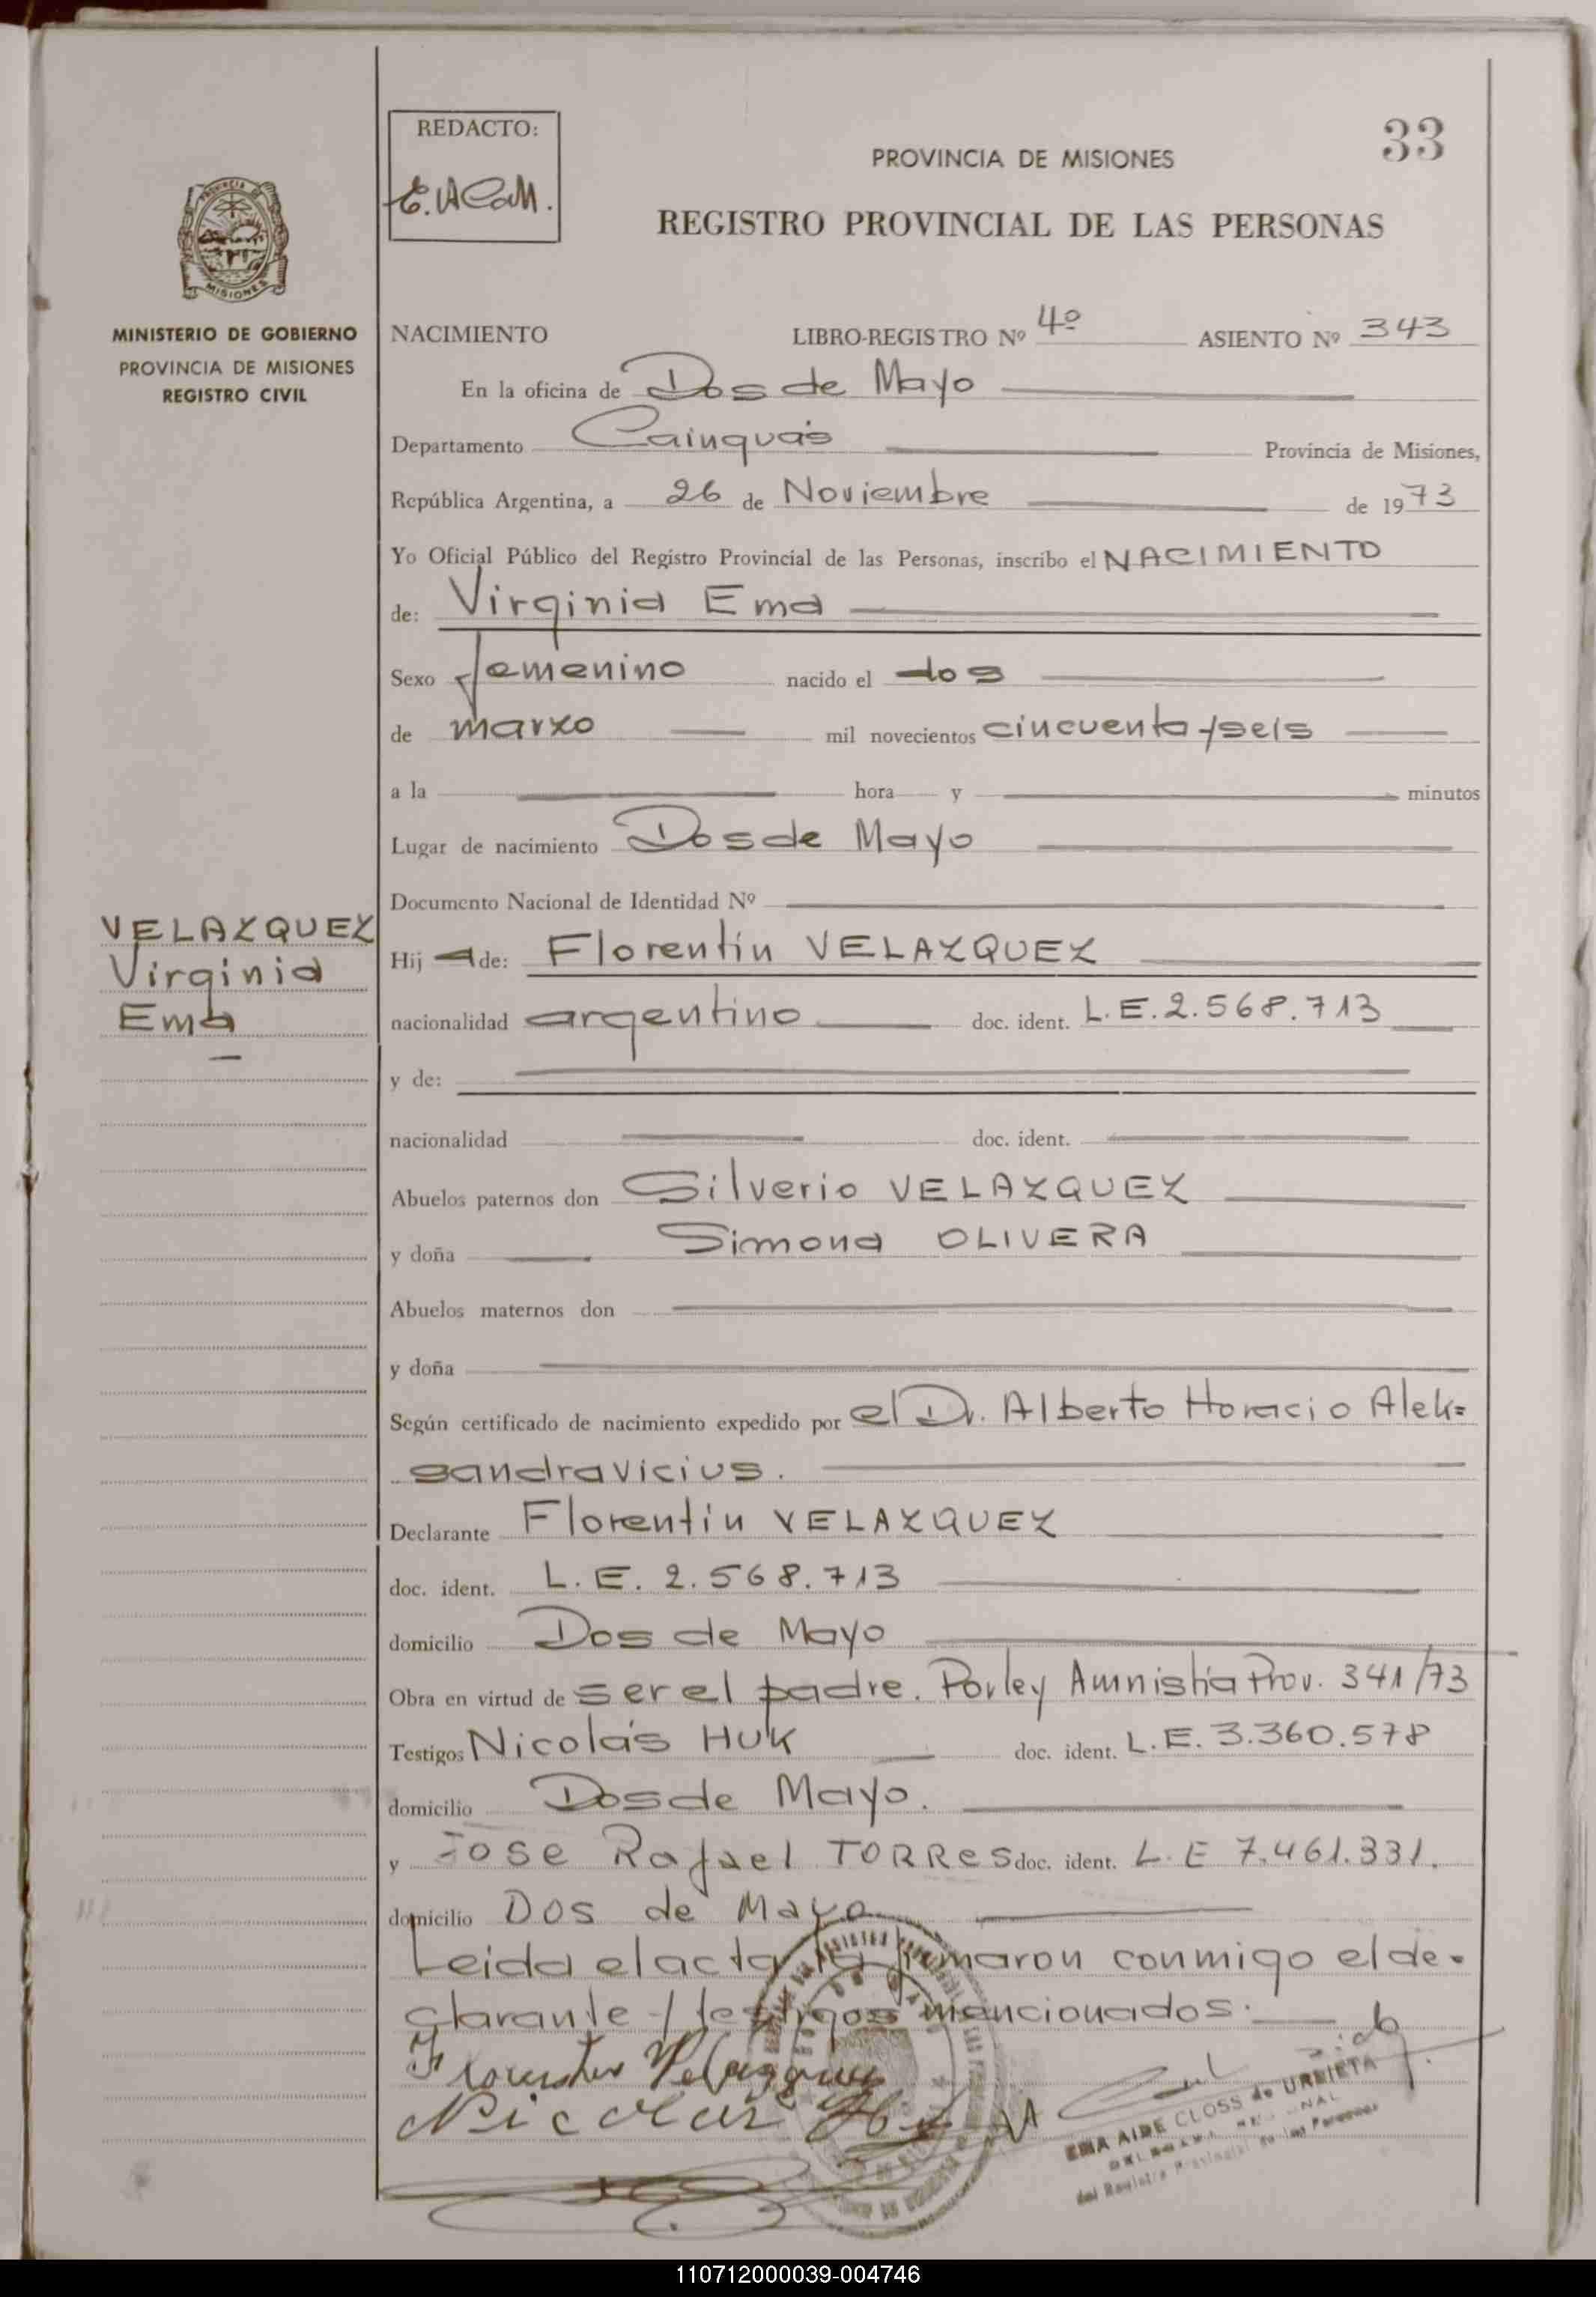 REDACTO:
33
PROVINCIA DE MISIONES
REGISTRO PROVINCIAL DE LAS PERSONAS
MISIONES
MINISTERIO DE GOBIERNO
PROVINCIA DE MISIONES
REGISTRO CIVIL
NACIMIENTO LIBRO-REGISTRO Nº 4º ASIENTO Nº 343
En la oficina de Dos de Mayo
Departamento Cainguás Provincia de Misiones,
República Argentina, a 26 de Noviembre de 1973
Yo Oficial Público del Registro Provincial de las Personas, inscribo el NACIMIENTO
de: Virginia Ema
Sexo femenino nacido el dos
de marzo mil novecientos cincuenta y seis
a la hora y minutos
Lugar de nacimiento Dos de Mayo
Documento Nacional de Identidad Nº
VELAZQUEZ
Virginia
Ema
Hij a de: Florentín VELAZQUEZ
nacionalidad argentino doc. ident. L.E.2.568.713
y de:
nacionalidad doc. ident.
Abuelos paternos don Silverio VELAZQUEZ
y doña Simona OLIVERA
Abuelos maternos don
y doña
Según certificado de nacimiento expedido por el Dr. Alberto Horacio Alek=
sandravicius.
Declarante Florentín VELAZQUEZ
doc. ident. L.E. 2.568.713
domicilio Dos de Mayo
Obra en virtud de ser el padre. Por ley Amnistía Prov. 341/73
Testigos Nicolás HUK doc. ident. L.E. 3.360.578
domicilio Dos de Mayo.
y Jose Rafael TORRES doc. ident. L.E 7.461.331.
domicilio Dos de Mayo
Leida el acta la firmaron conmigo el de-
clarante y testigos mencionados.
Florentin Velazquez
Nicolas Huk
EMA AIDE CLOSS de URRIETA
del Registro Provincial de las Personas
110712000039-004746